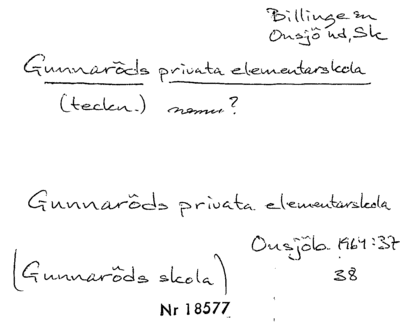 Billinge sn
Onsjö hd, Sk
Gunnaröds privata elementarskola
(teckn.) namn?
Gunnaröds privata elementarskola
Onsjöb. 1964:37
(Gunnaröds skola) 38
Nr 18577